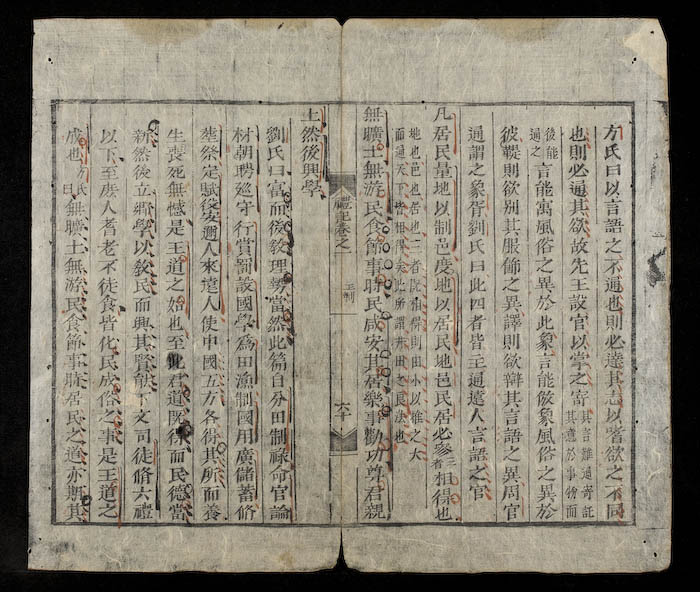 方氏曰以言語之不通也則必達其志以嗜欲之不同
也則必通其欲故先王設官以掌之寄其言雖通寄託其意於事物而
後能通之言能寓風俗之異於此象言能倣象風俗之異於
彼鞮則欲別其服飾之異譯則欲辯其言語之異周官
通謂之象胥劉氏曰此四者皆主通遠人言語之官
凡居民量地以制邑度地以居民地邑民居必參三者相得也
地也邑也居也三者既相得則由小以推之大
而通天下皆相得矣此所謂井田之良法也
無曠土無游民食節事時民咸安其居樂事勸功尊君親
禮記卷之
王制
六十
上然後興學
劉氏曰富而後敎理勢當然此篇自分田制祿命官論
材朝聘巡守行賞罰設國學爲田漁制國用廣儲蓄脩
塟祭定賦役安邇人來遠人使中國五方各得其所而養
生喪死無憾是王道之始也至此君道既得而民德當
新然後立鄉學以敎民而興其賢能下文司徒脩六禮
以下至庶人耆老不徒食皆化民成俗之事是王道之
成也方氏曰無曠土無游民食節事時居民之道亦期其